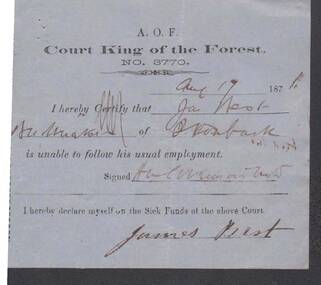 A. O. F.
Court King of the Forest.
NO. 3770.
Aug 19 187
I hereby Certify that Jas West
of
is unable to follow his usual employment.
Signed
I hereby declare myself on the Sick Funds of the above Court
James West